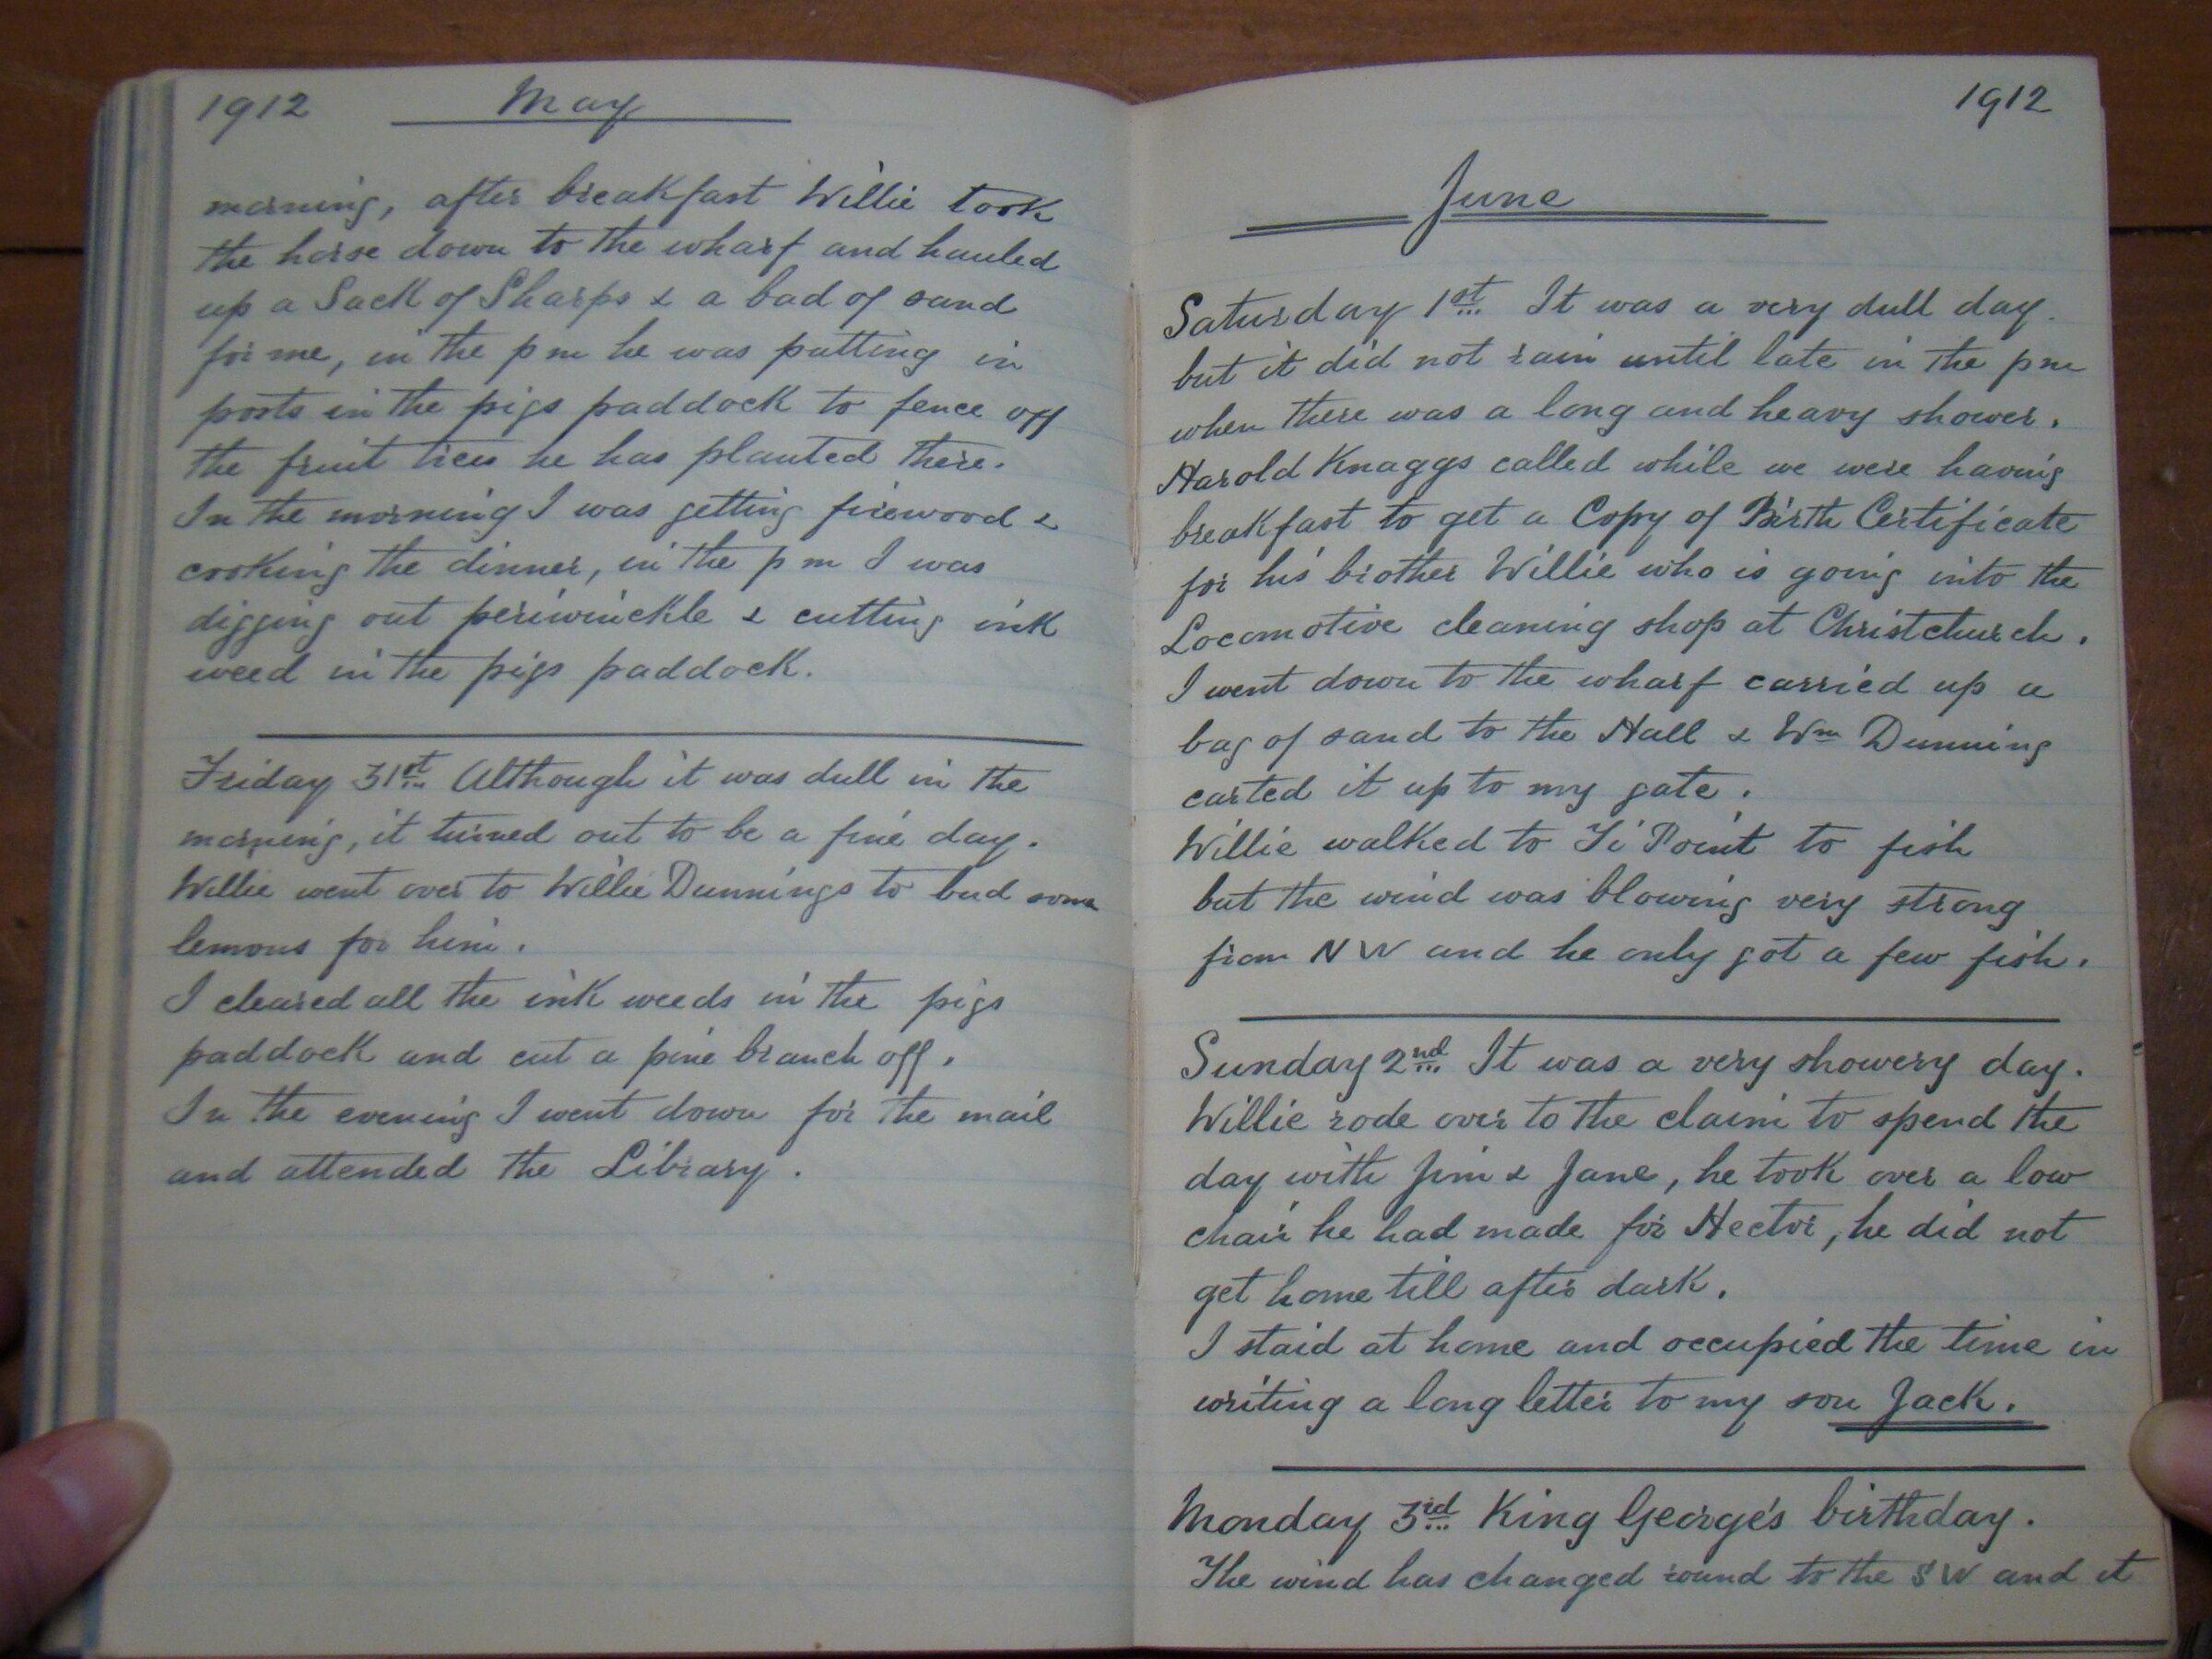 1912 May
morning, after breakfast Willie took
the horse down to the wharf and hauled
up a Sack of Sharps & a bad of sand
for me, in the pm he was putting in
posts in the pigs paddock to fence off
the fruit trees he has planted there.
In the morning I was getting firewood &
cooking the dinner, in the pm I was
digging out periwinckle & cutting ink
weed in the pigs paddock.
Friday 31st Although it was dull in the
morning, it turned out to be a fine day.
Willie went over to Willie Dunnings to bud some
lemons for him.
I cleared all the ink weeds in the pigs
paddock and cut a pine branch off.
In the evening I went down for the mail
and attended the Library.
1912
June
Saturday 1st It was a very dull day.
but it did not rain until late in the pm
when there was a long and heavy shower.
Harold Knaggs called while we were having
breakfast to get a Copy of Birth Certificate
for his brother Willie who is going into the
Locomotive cleaning shop at Christchurch.
I went down to the wharf carried up a
bag of sand to the Hall & Wm Dunning
carted it up to my gate.
Willie walked to Ti Point to fish
but the wind was blowing very strong
from N W and he only got a few fish.
Sunday 2nd It was a very showery day.
Willie rode over to the claim to spend the
day with Jim & Jane, he took over a low
chair he had made for Hector, he did not
get home till after dark.
I staid at home and occupied the time in
writing a long letter to my son Jack.
Monday 3rd King George's birthday.
The wind has changed round to the S W and it